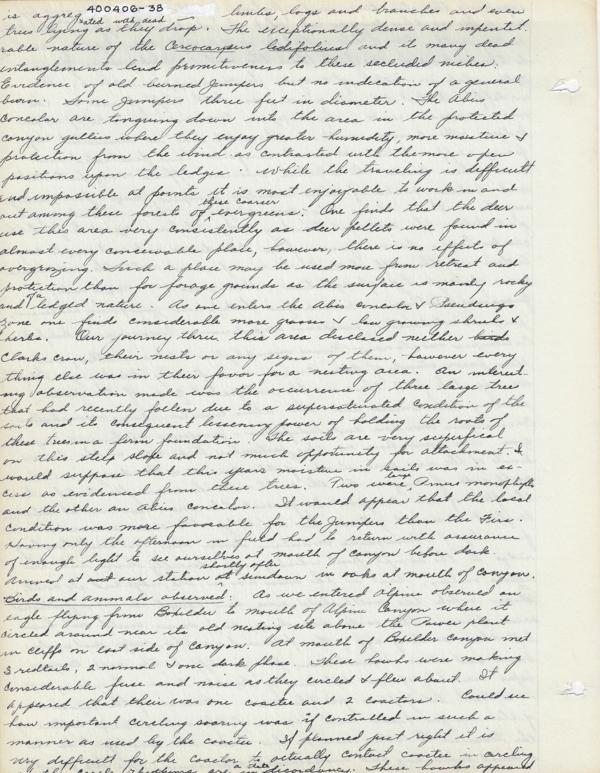 400406-38
is aggreg nated with dead limbs, logs and branches and even
trees lying as they drop. The exceptionally dense and impenit-
rable nature of the Cercocarpus ledifolius and its many dead
entanglements lend primitiveness to these secluded niches.
Evidence of old burned Junipers but no indication of a general
burn. Some Junipers three feet in diameter. The Abies
concolor are tonguing down into the area in the protected
canyon gullies where they enjoy greater humidity, more moisture &
protection from the wind as contrasted with the more open
positions upon the ledges. While the traveling is difficult
and impossible at points it is most enjoyable to work in and
out among these forests of these coarser evergreens. One finds that the deer
use this area very consistently as deer pellets were found in
almost every conceivable place, however, there is no effects of
overgrazing. Such a place may be used more from retreat and
protection than for forage grounds as the surface is mainly rocky
and of a ledged nature. As one enters the Abies concolor & Pseudotsuga
zone one finds considerable more grasses & low growing shrubs &
herbs. Our journey thru this area disclosed neither birds
Clarks crow, their nests or any signs of them, however every
thing else was in their favor for a nesting area. An interest-
ing observation made was the occurrence of three large trees
that had recently fallen due to a supersaturated condition of the
soils and its consequent lessening power of holding the roots of
these trees in a firm foundation. The soils are very superfical
on this steep slope and not much opportunity for attachment. I
would suppose that this years moisture in soils was in ex-
cess as evidenced from these trees. Two were large Pinus monophylla
and the other an Abies concolor. It would appear that the local
condition was more favorable for the Junipers than the Firs.
Having only the afternoon in field had to return with assurance
of enough light to see ourselves at mouth of canyon before dark.
Arrived at our station shortly after sundown in oaks at mouth of canyon.
Birds and animals observed: As we entered Alpine observed an
eagle flying from Boulder to mouth of Alpine Canyon where it
circled around near its old nesting site above the Power plant
in cliffs on east side of canyon. At mouth of Boulder canyon met
3 redtails, 2 normal & one dark phase. These hawks were making
considerable fuss and noise as they circled & flew about. It
appeared that there was one coaster and 2 coasters. Could see
how important circling soaring was if controlled in such a
manner as used by the coaster. If planned just right it is
very difficult for the coaster to actually contact coastee in circling
These hawks appeared